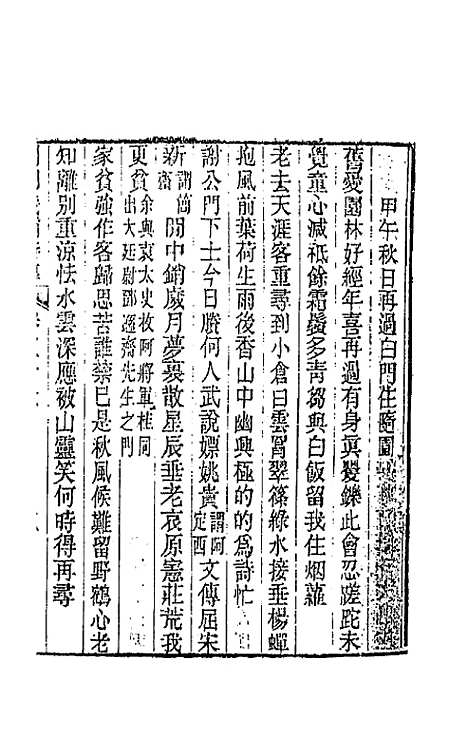 甲午秋日再過白門住隨園
舊愛園林好經年喜再過有身真矍鑠此會忍蹉跎未
覺童心減祗餘霜鬢多青芻與白飯留我住烟蘿
老去天涯客重尋到小倉白雲罥翠篠綠水接垂楊蟬
抱風前葉荷生雨後香山中幽興極的的為詩忙
謝公門下士今日賸何人武說嫖姚貴謂阿定西文傳屈宋
新謂簡齋閒中銷歲月夢裏散星辰垂老哀原憲莊荒我
更貧余與袁太史故阿將軍桂同出大廷尉鄧遜齋先生之門
家貧強作客歸思苦誰禁已是秋風候難留野鶴心老
知離別重涼怯水雲深應被山靈笑何時得再尋